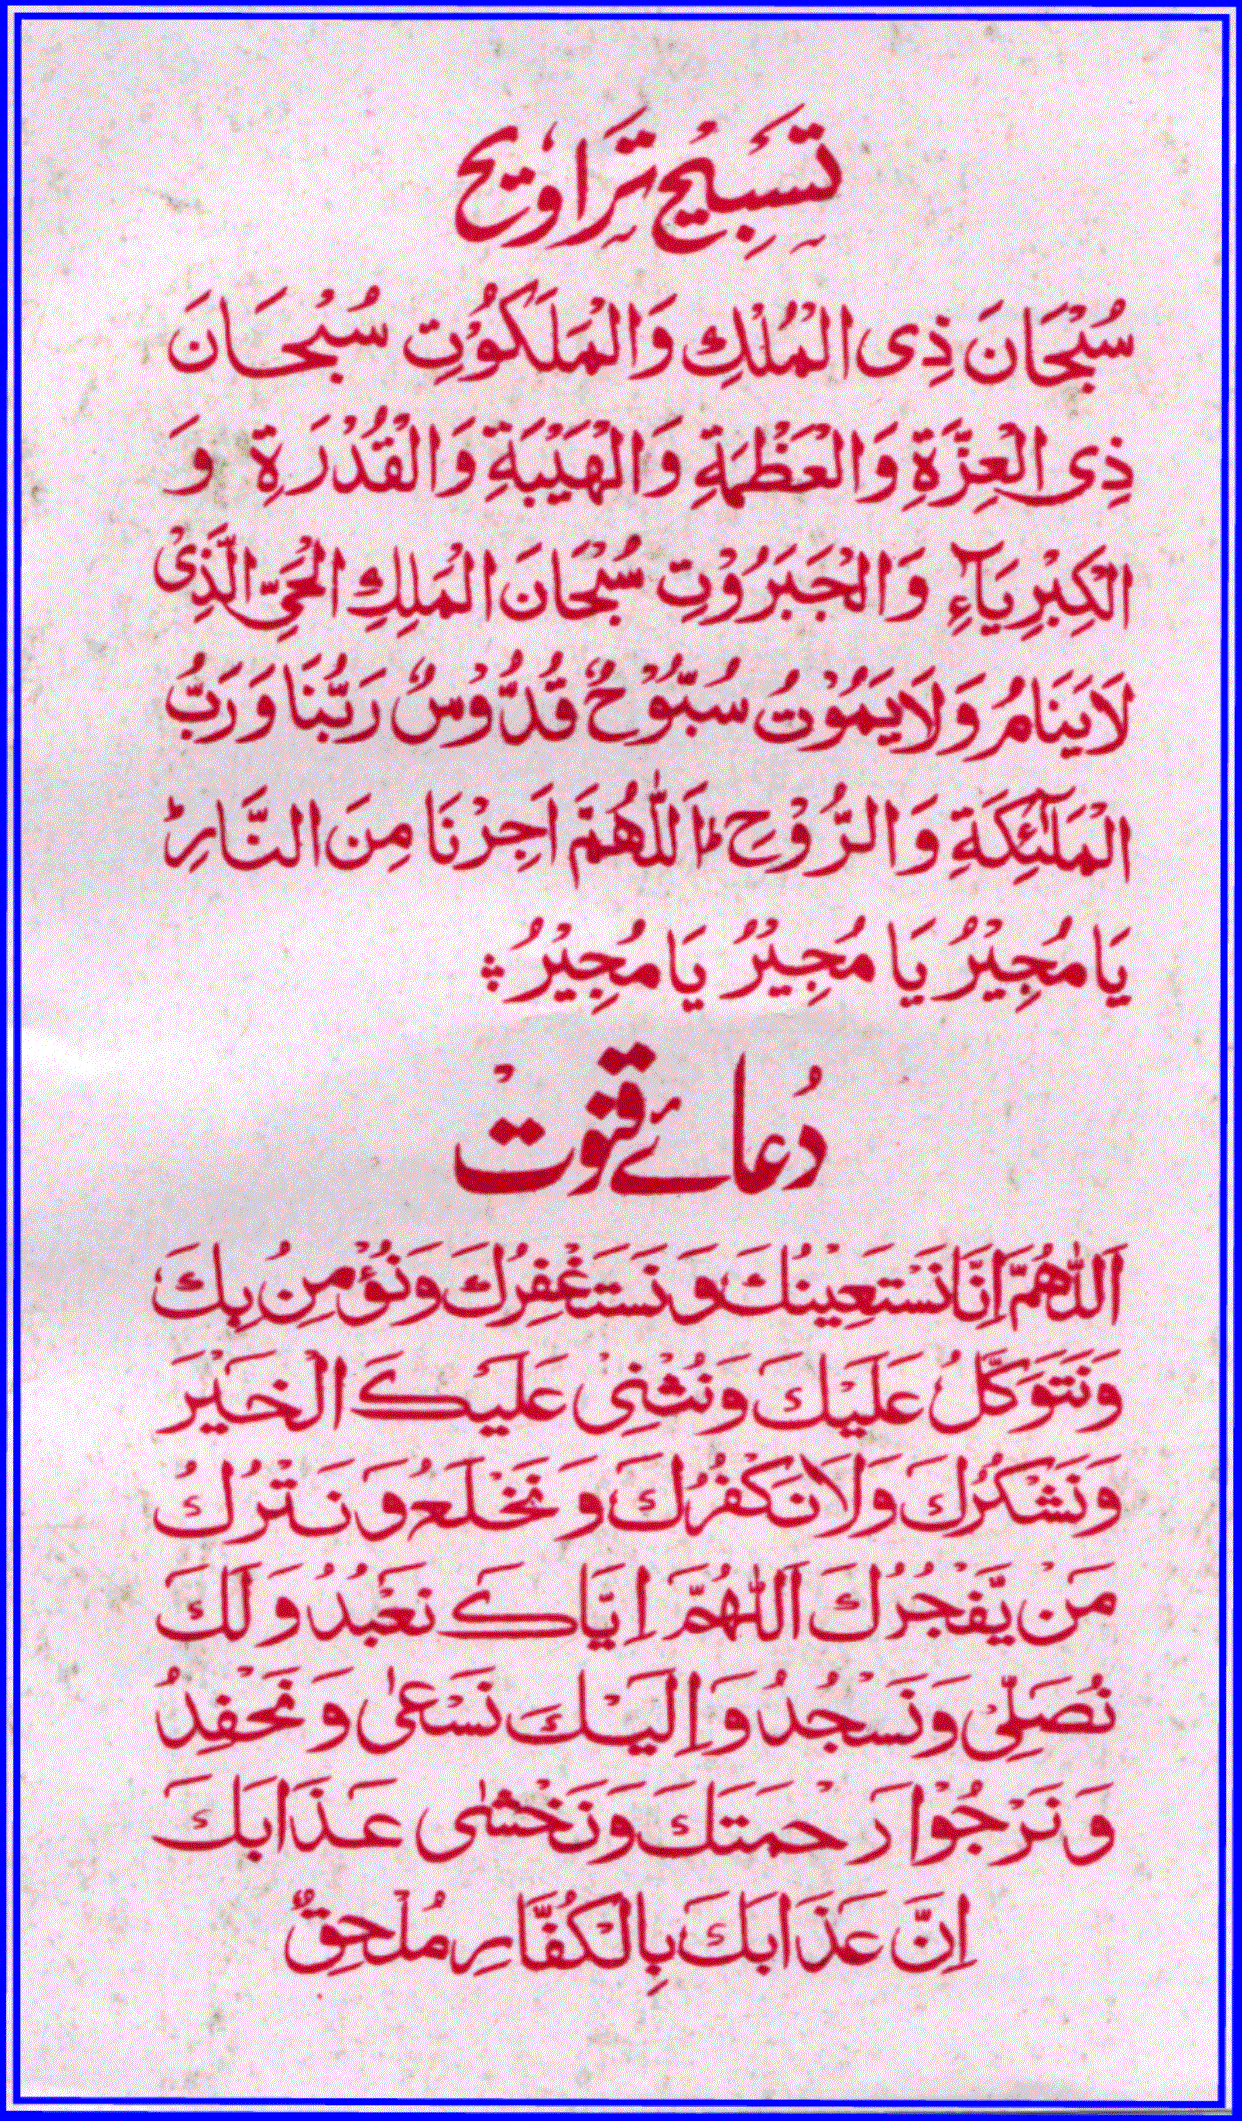 تَسْبِيْح تَرَاوِيْح
سُبْحَانَ ذِی الْمُلْكِ وَالْمَلَكُوْتِ سُبْحَانَ
ذِی الْعِزَّةِ وَالْعَظْمَةِ وَالْهَيْبَةِ وَالْقُدْرَةِ وَ
الْكِبْرِيَآءِ وَالْجَبَرُوْتِ سُبْحَانَ الْمَلِكِ الْحَیِّ الَّذِیْ
لَايَنَامُ وَلَايَمُوْتُ سُبُّوْحٌ قُدُّوْسٌ رَبُّنَا وَرَبُّ
الْمَلٰٓئِكَةِ وَالرُّوْحِ ؕ اَللّٰهُمَّ اَجِرْنَا مِنَ النَّارِ ؕ
يَا مُجِيْرُ يَا مُجِيْرُ يَا مُجِيْرُ
دُعائے قنوتْ
اَللّٰهُمَّ اِنَّا نَسْتَعِيْنُكَ وَنَسْتَغْفِرُكَ وَنُؤْمِنُ بِكَ
وَنَتَوَكَّلُ عَلَيْكَ وَنُثْنِیْ عَلَيْكَ الْخَيْرَ
وَنَشْكُرُكَ وَلَا نَكْفُرُكَ وَنَخْلَعُ وَنَتْرُكُ
مَنْ يَّفْجُرُكَ اَللّٰهُمَّ اِيَّاكَ نَعْبُدُ وَلَكَ
نُصَلِّیْ وَنَسْجُدُ وَاِلَيْكَ نَسْعٰی وَنَحْفِدُ
وَنَرْجُوْا رَحْمَتَكَ وَنَخْشٰی عَذَابَكَ
اِنَّ عَذَابَكَ بِالْكُفَّارِ مُلْحِقٌ